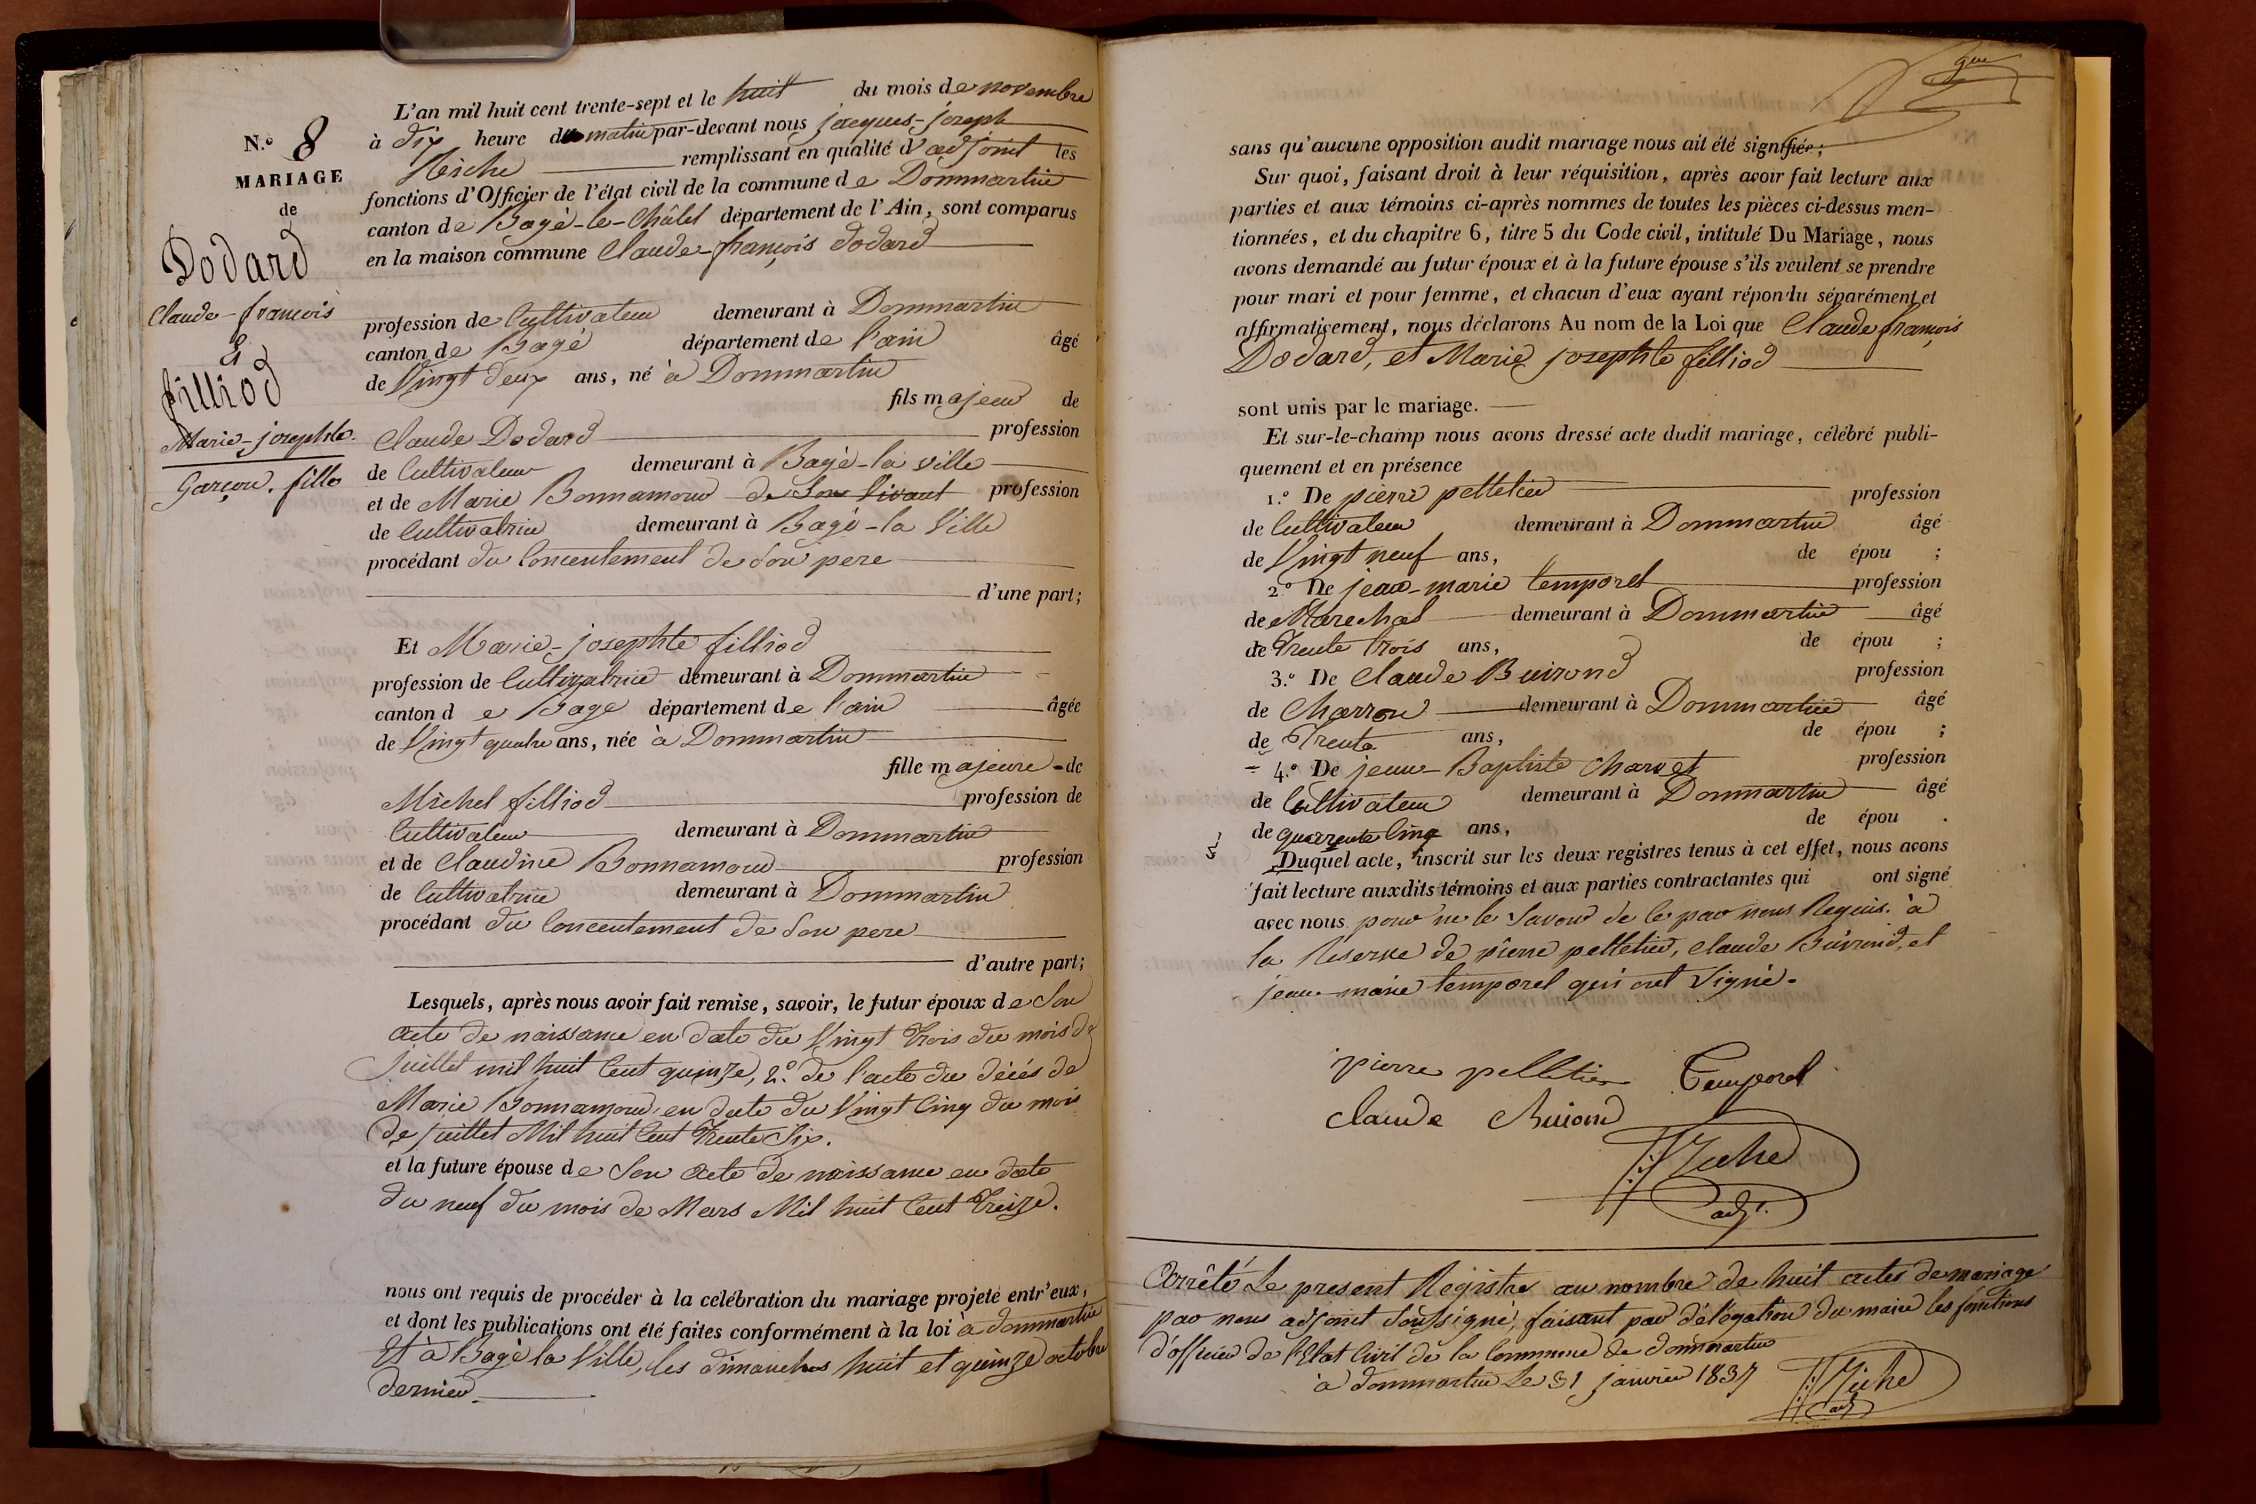 N.º 8
MARIAGE
de
Dodard
Claude-françois
&
filliod
Marie-josephte.
Garçon. fille
L'an mil huit cent trente-sept et le huit du mois de novembre
à dix heure du matin par-devant nous jacques-joseph
remplissant en qualité d'adjoint les
fonctions d'Officier de l'état civil de la commune de Dommartin
canton de Bagé-le-Châtel département de l'Ain, sont comparus
en la maison commune Claude-françois dodard
profession de Cultivateur demeurant à Dommartin
canton de Bagé département de l'ain âgé
de Vingt deux ans, né à Dommartin
fils majeur de
Claude Dodard profession
de Cultivateur demeurant à Bagé-la ville
et de Marie Bonnamour de Son Vivant profession
de Cultivatrice demeurant à Bagé-la Ville
procédant du Concentement de Son pere
d'une part;
Et Marie-josephte filliod
profession de Cultivatrice demeurant à Dommartin
canton de Bage département de l'ain âgée
de Vingt quatre ans, née à Dommartin
fille majeure de
Michel filliod profession de
Cultivateur demeurant à Dommartin
et de Claudine Bonnamour profession
de Cultivatrice demeurant à Dommartin
procédant du Concentement de Son pere
d'autre part;
Lesquels, après nous avoir fait remise, savoir, le futur époux de Son
acte de naissance en date du Vingt trois du mois de
Juillet mil huit Cent quinze, 2.º de l'acte du décés de
Marie Bonnamour, en date du Vingt Cinq du mois
de juillet Mil huit Cent Trente Six.
et la future épouse de Son acte de naissance en date
du neuf du mois de Mars Mil huit Cent Treize.
nous ont requis de procéder à la célébration du mariage projeté entr'eux,
et dont les publications ont été faites conformément à la loi à dommartin
Et à Bagé la Ville, les dimanches huit et quinze octobre
dernier
sans qu'aucune opposition audit mariage nous ait été signifiée;
Sur quoi, faisant droit à leur réquisition, après avoir fait lecture aux
parties et aux témoins ci-après nommes de toutes les pièces ci-dessus men-
tionnées, et du chapitre 6, titre 5 du Code civil, intitulé Du Mariage, nous
avons demandé au futur époux et à la future épouse s'ils veulent se prendre
pour mari et pour femme, et chacun d'eux ayant répondu séparément et
affirmativement, nous déclarons Au nom de la Loi que Claude françois
Dodard, et Marie josephte filliod
sont unis par le mariage.
Et sur-le-champ nous avons dressé acte dudit mariage, célébré publi-
quement et en présence
1.º De pierre pelletier profession
de Cultivateur demeurant à Dommartin âgé
de Vingt neuf ans, de épou ;
2.º De jean-marie temporel profession
de Marechal demeurant à Dommartin âgé
de Trente trois ans, de épou ;
3.º De Claude Buirond profession
de Charron demeurant à Dommartin âgé
de Trente ans, de épou ;
4.º De jean-Baptiste Charvet profession
de Cultivateur demeurant à Dommartin âgé
de quarrente Cinq ans, de épou .
Duquel acte, inscrit sur les deux registres tenus à cet effet, nous avons
fait lecture auxdits témoins et aux parties contractantes qui ont signé
avec nous pour ne le Savoir de le par nous Requis. à
la Reserve de pierre pelletier, Claude Buirond, et
jean-marie temporel qui ont Signé.
pierre pelletier Temporel
claude Buirond
adj.
Arrêté Le present Registre au nombre de huit actes de mariage
par nous adjoint Soussigné, faisant par délégation du maire les fonctions
d'officier de l'Etat Civil de la Commune de dommartin
à dommartin Le 31 janvier 1837
adj